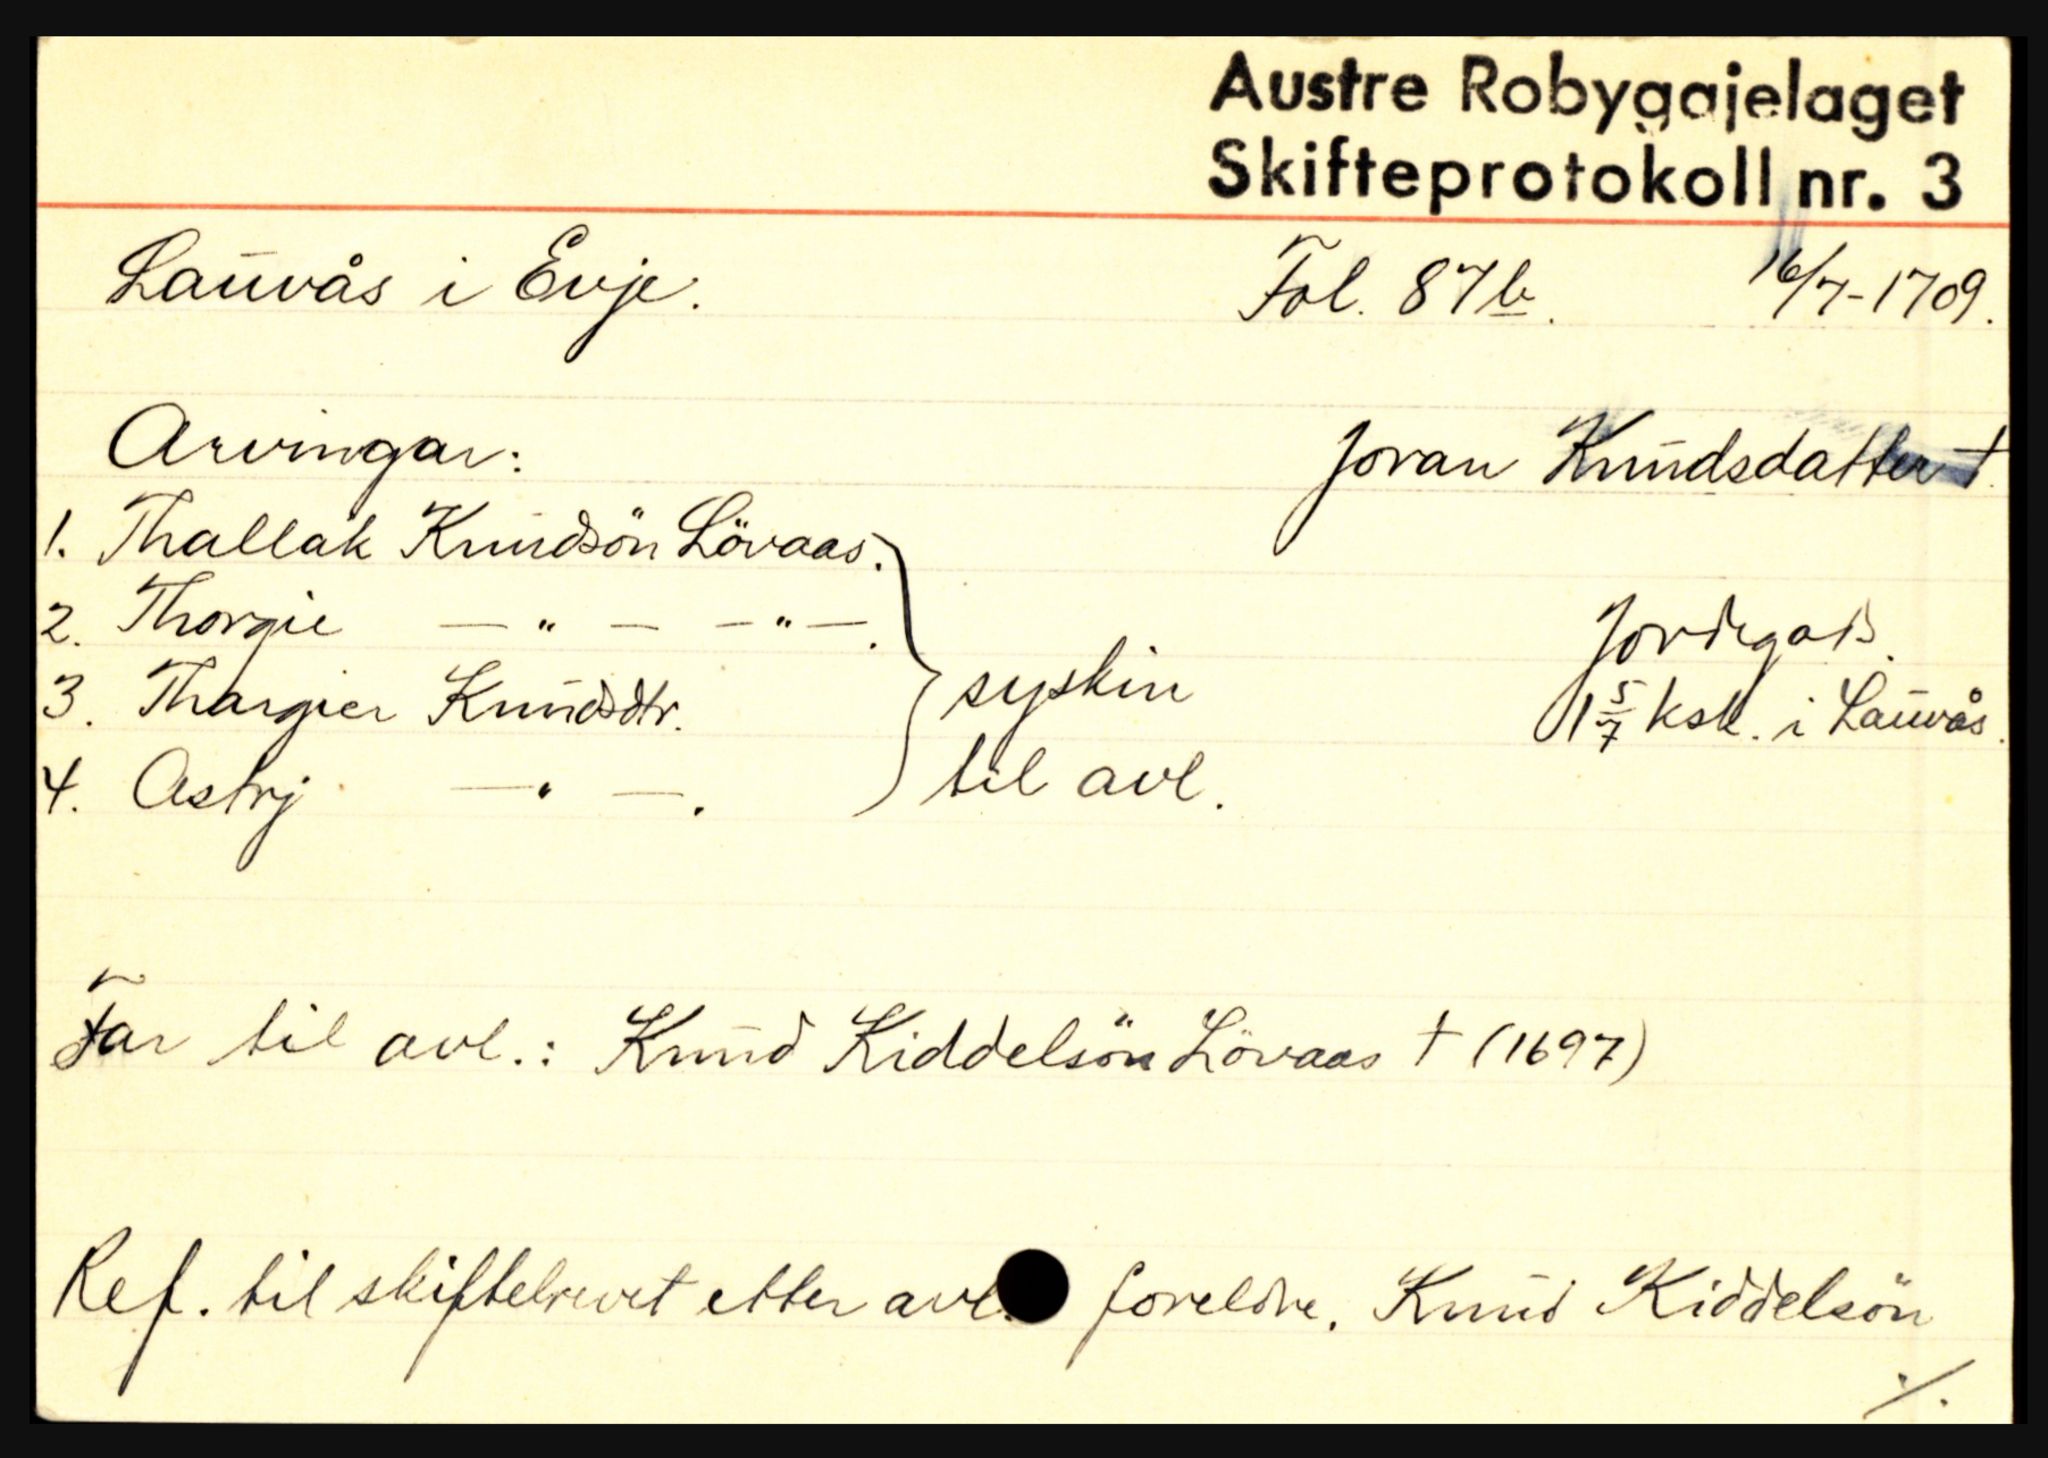 Austre Robygajelaget
Skifteprotokoll nr. 3
Lauvås i Evje. Fol. 87b. 16/7-1709.
Arvingar: Joran Knudsdatter †.
1. Thallak Knudsön Lövaas.
2. Thorgie — " — — " —.
3. Thargier Knudsdtr. syskin
4. Astrj — " —. til avl.
Jordegods.
1 5/7 ksk. i Lauvås.
Far til avl.: Knud Kiddelsön Lövaas † (1697)
Ref. til skiftebrevet etter avl. foreldre. Knud Kiddelsön
./.